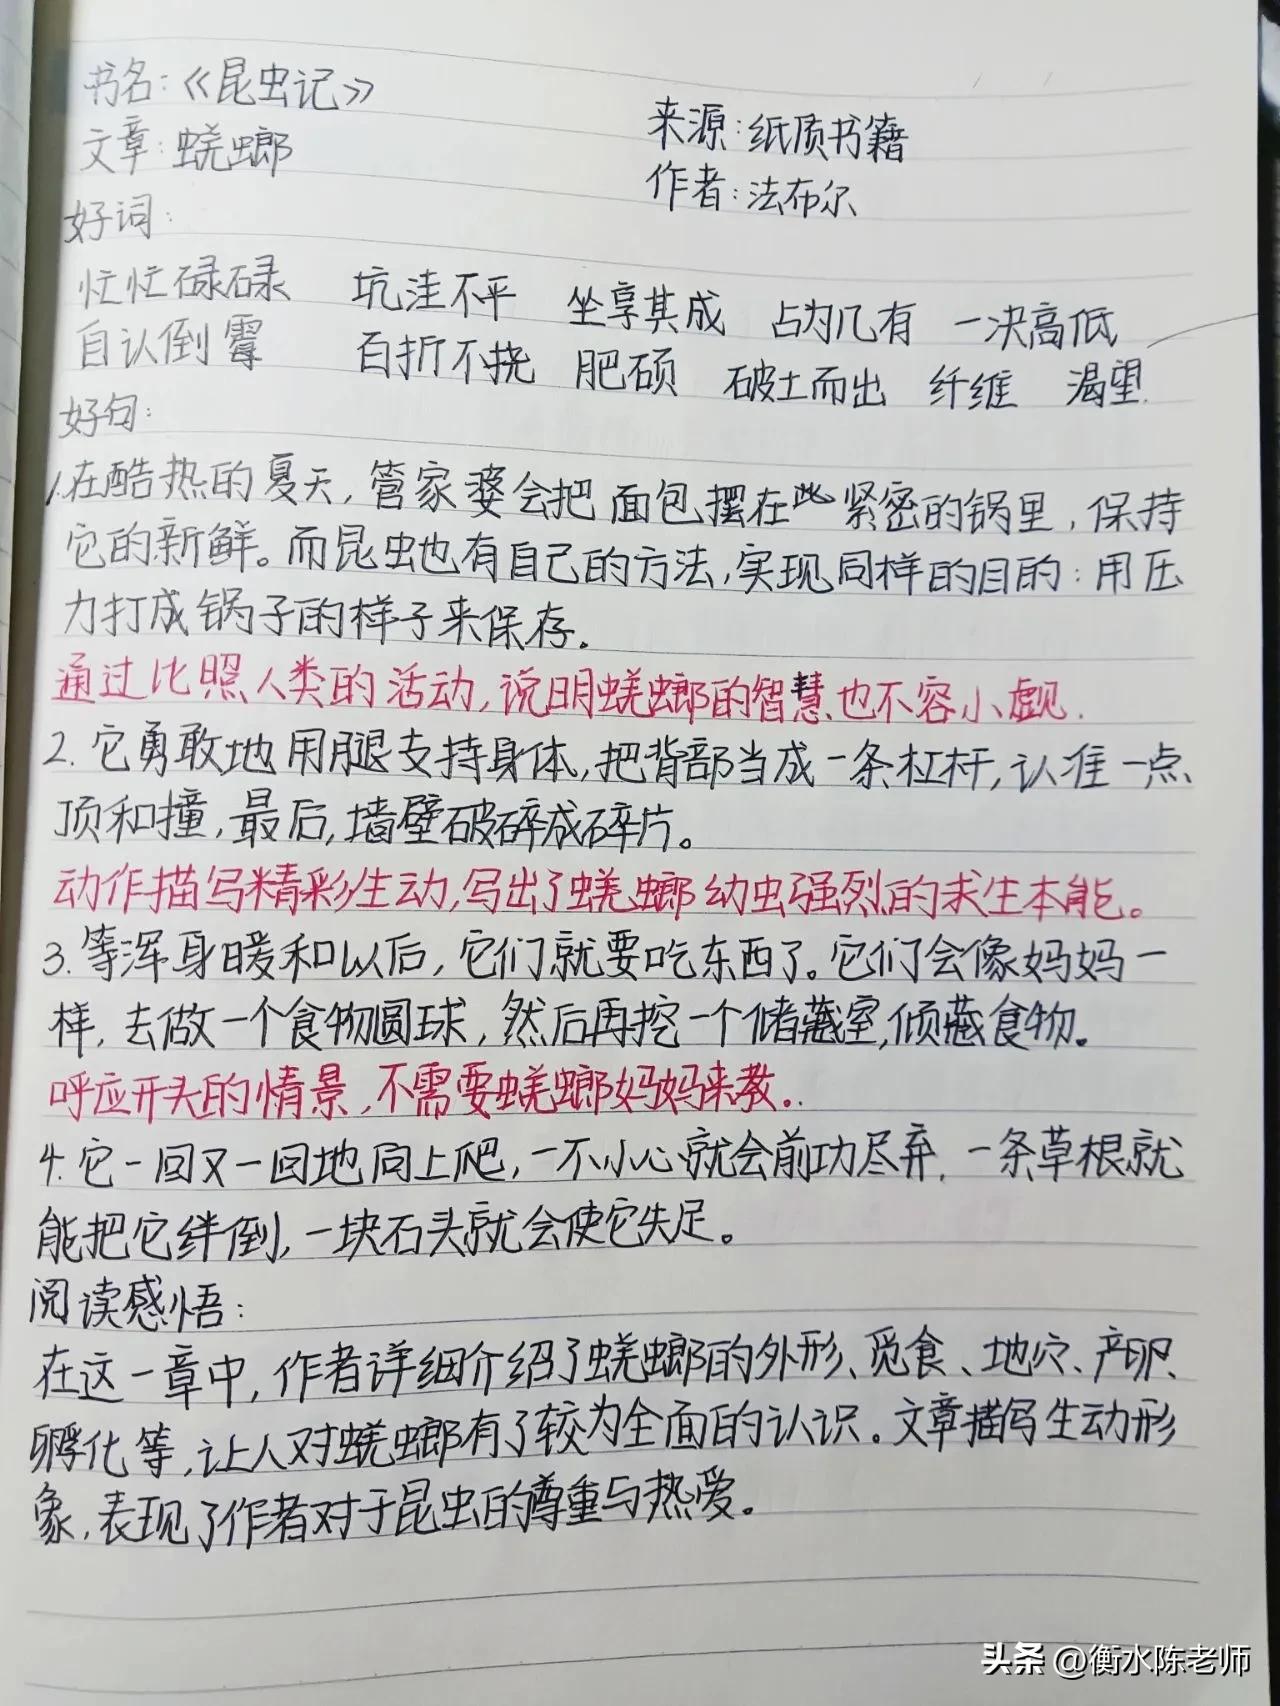 书名:《昆虫记》
来源:纸质书籍
文章:蜣螂
作者:法布尔
好词:
忙忙碌碌 坑洼不平 坐享其成 占为几有 一决高低
自认倒霉 百折不挠 肥硕 破土而出 纤维 渴望.
好句:
1.在酷热的夏天,管家婆会把面包摆在些紧密的锅里,保持
它的新鲜。而昆虫也有自己的方法,实现同样的目的:用压
力打成锅子的样子来保存。
通过比照人类的活动,说明蜣螂的智慧也不容小觑.
2.它勇敢地用腿支持身体,把背部当成一条杠杆,认准一点
顶和撞,最后,墙壁破碎成碎片。
动作描写精彩生动,写出了蜣螂幼虫强烈的求生本能。
3.等浑身暖和以后,它们就要吃东西了。它们会像妈妈一
样,去做一个食物圆球,然后再挖一个储藏室,倾藏食物。
呼应开头的情景,不需要蜣螂妈妈来教。
4.它一回又一回地向上爬,一不小心就会前功尽弃,一条草根就
能把它绊倒,一块石头就会使它失足。
阅读感悟:
在这一章中,作者详细介绍了蜣螂的外形、觅食、地穴、产卵、
孵化等,让人对蜣螂有了较为全面的认识。文章描写生动形
象,表现了作者对于昆虫的尊重与热爱。
头条 @衡水陈老师